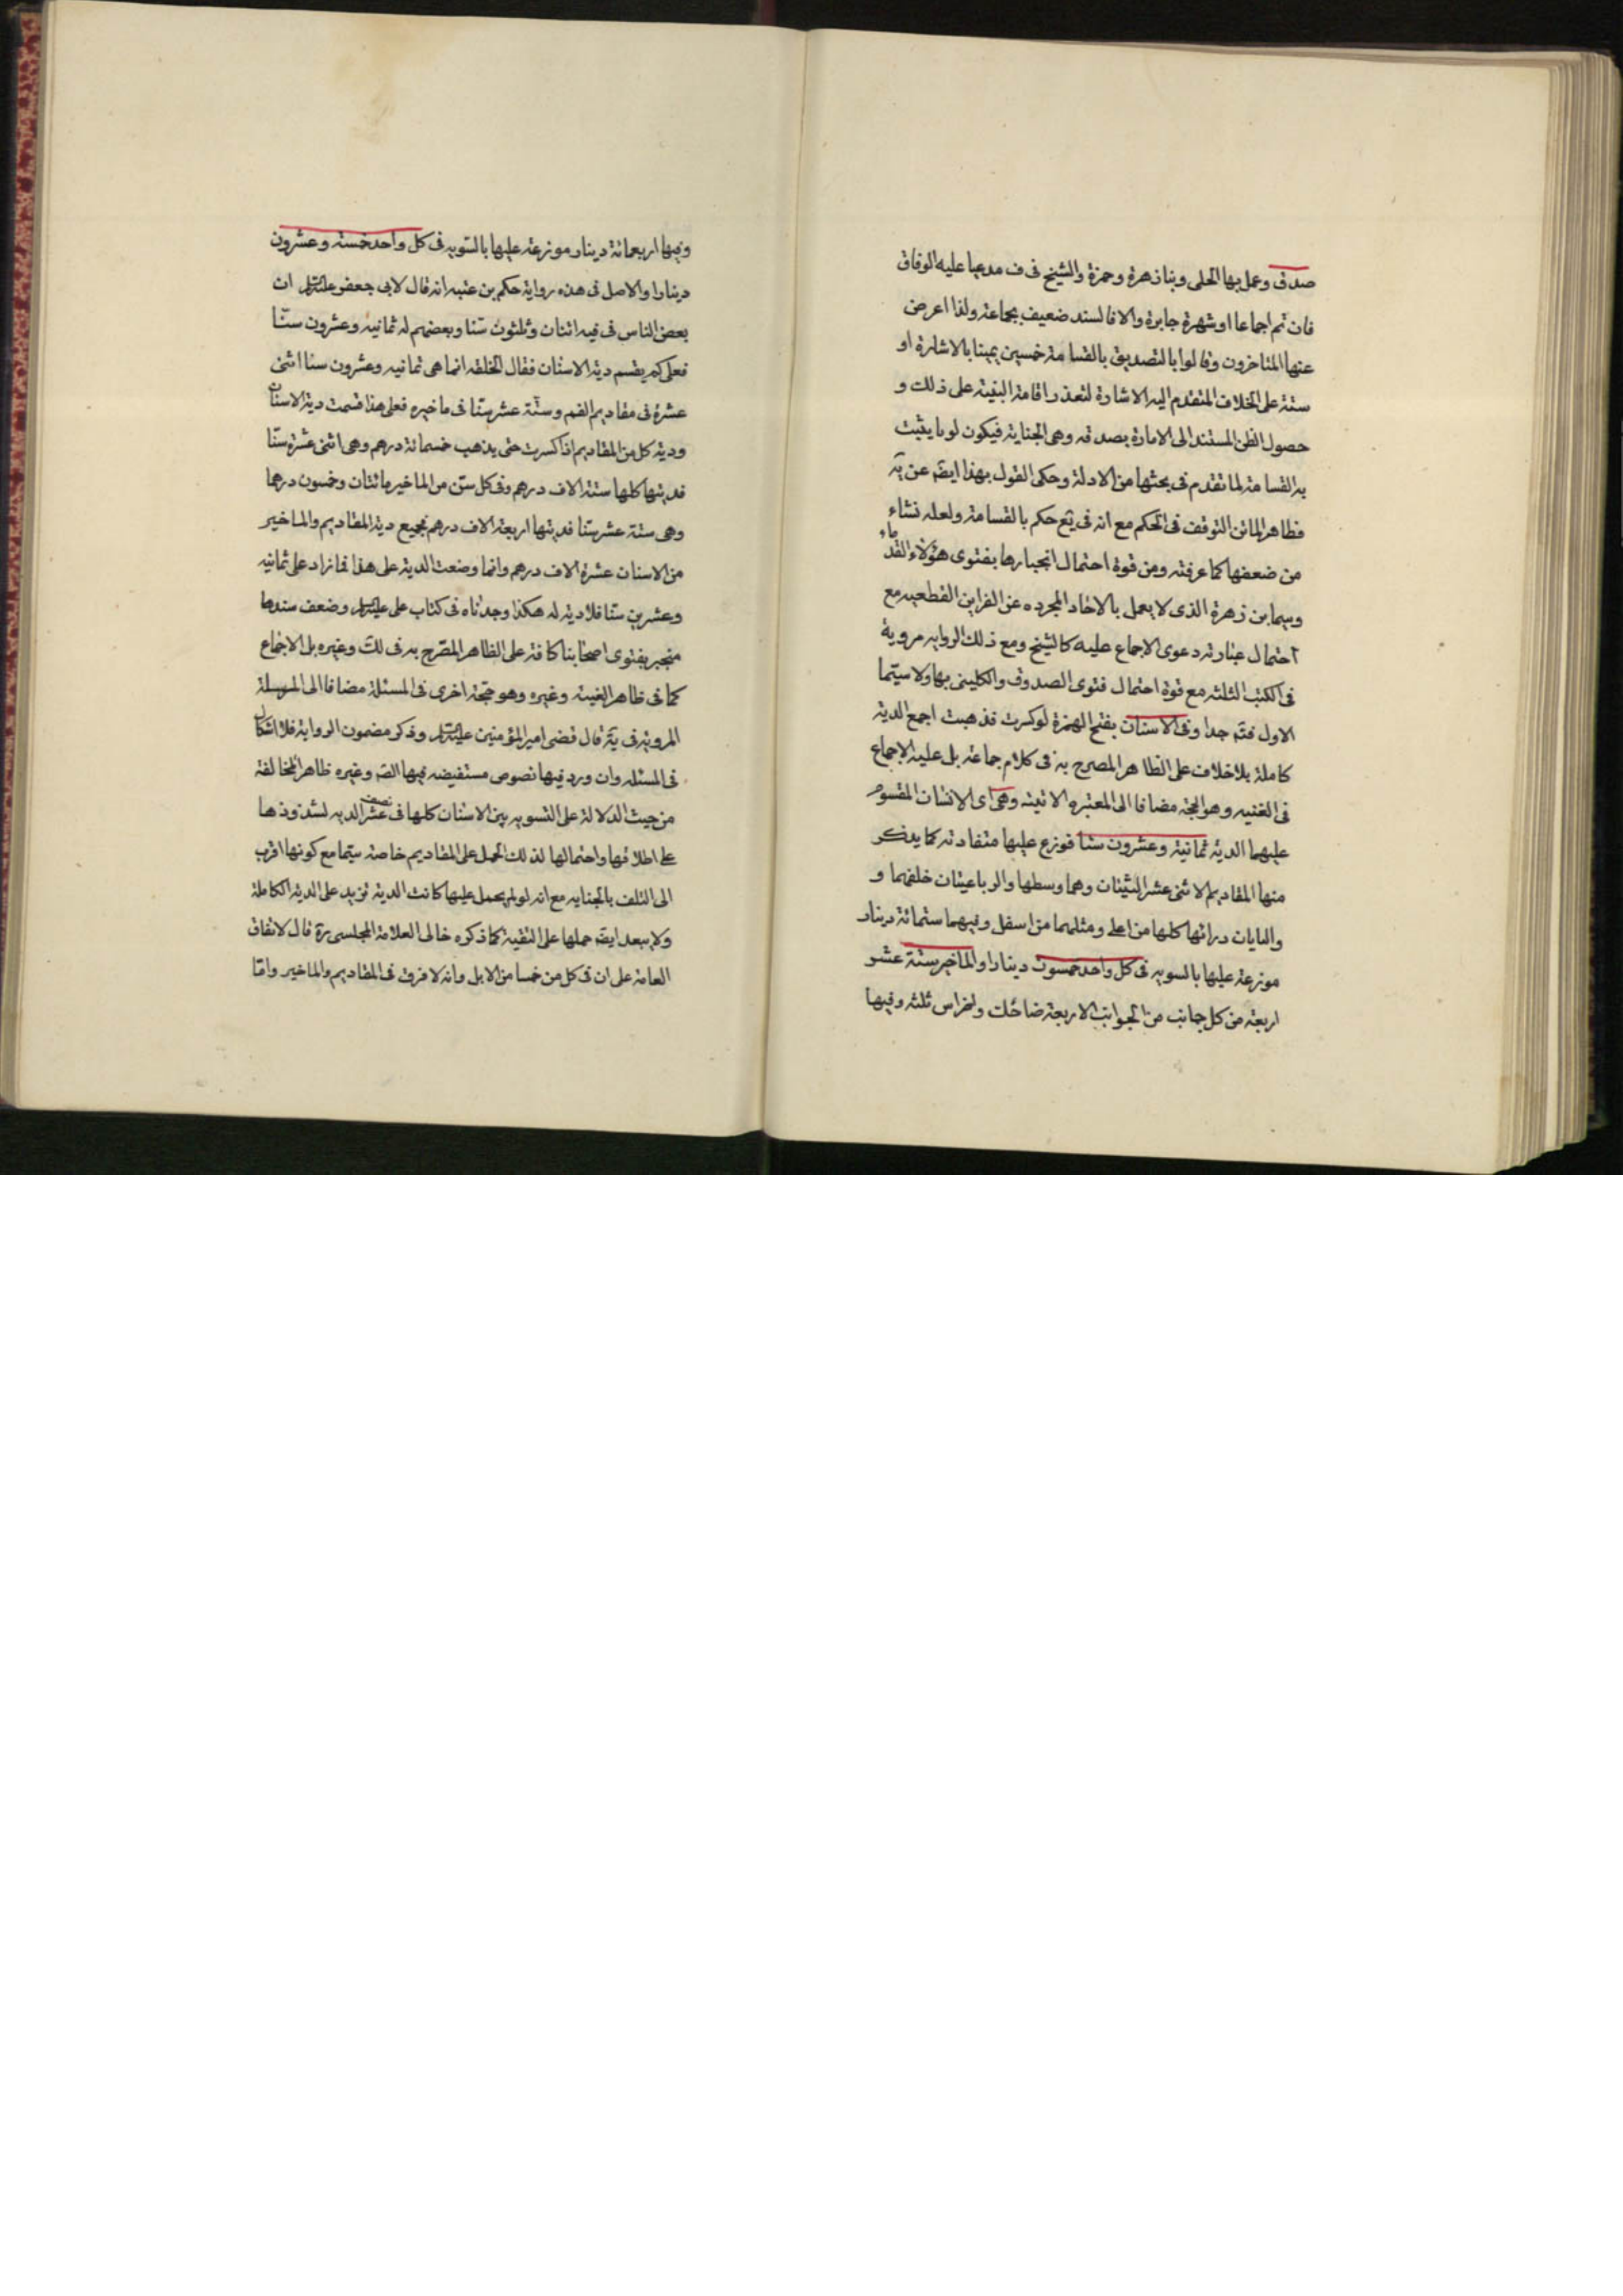 صدق وعمل بها الحلى وبنا زهرة وحمزة والشيخ فى ف مدعيا عليه الوفاق
فان تم اجماعا او شهرة جابرة والا فالسند ضعيف بجماعة ولذا اعرض
عنها المتاخرون وقالوا بالتصديق بالقسامة خمسين يمينا بالاشارة او
ستة على الخلاف المتقدم اليه الاشارة لتعذر اقامة البينة على ذلك و
حصول الظن المستند الى الامارة بصدقه وهى الجناية فيكون لوثا يثبت
به القسامة لما تقدم فى بحثها من الادلة وحكى القول بهذا ايضا عن
فظاهر الماتن التوقف فى الحكم مع انه فى يع حكم بالقسامة ولعله نشاء
من ضعفها كما عرفته ومن قوة احتمال انجبارها بفتوى هؤلاء القدماء
وسيما بن زهرة الذى لا يعمل بالاخاد المجرده عن القراين القطعيه مع
احتمال عبارته دعوى الاجماع عليه كالشيخ ومع ذلك الروايه مروية
فى الكتب الثلثه مع قوة احتمال فتوى الصدوق والكلينى بها ولا سيتما
الاول فتم جدا وفى الاسنان بفتح الهمزة لو كسرت فذهبت اجمع الدية
كاملة بلا خلاف على الظاهر المصرح به فى كلام جماعة بل عليه الاجماع
فى الغنيه وهو الحجة مضافا الى المعتبره الاتيته وهى اى الاسنان المقسوم
عليها الدية ثمانية وعشرون سنا فوزع عليها متفاوته كما يذكر
منها المقاديم الاثنى عشر الثنيتان وهما وسطها والرباعيتان خلفهما و
والنابان ورائها كلها من اعلى ومثلهما من اسفل وفيهما ستمائة دينار
موزعة عليها بالسويه فى كل واحد خمسون دينارا والماخير ستة عشر
اربعة من كل جانب من الجوانب الاربعة ضاحك واضراس ثلثه وفيها
وفيها اربعمائة دينار موزعة عليها بالسويه فى كل واحد خمسة وعشرون
دينارا والاصل فى هذه رواية حكم بن عتيبه انه قال لابى جعفر عليه السلام ان
بعض الناس فى فيه اثنان وثلثون سنا وبعضهم له ثمانيه وعشرون سنا
فعلى كم يقسم دية الاسنان فقال الخلقه انما هى ثمانيه وعشرون سنا اثنى
عشرة فى مقاديم الفم وستة عشر سنا فى ماخيره فعلى هذا قسمت دية الاسنان
ودية كل من المقاديم اذا كسرت حتى يذهب خمسمائة درهم وهى اثنى عشرة سنا
فديتها كلها ستة الاف درهم وفى كل سن من الماخير مائتان وخمسون درهما
وهى ستة عشر سنا فديتها اربعة الاف درهم فجميع دية المقاديم والماخير
من الاسنان عشرة الاف درهم وانما وضعت الدية على هذا فما زاد على ثمانيه
وعشرين سنا فلا دية له هكذا وجدناه فى كتاب على عليه السلام وضعف سندها
منجبر بفتوى اصحابنا كافة على الظاهر المصرح به فى لك وغيره بل الاجماع
كما فى ظاهر الغنية وغيره وهو حجة اخرى فى المسئلة مضافا الى المرسلة
المرويه فى يه قال قضى امير المؤمنين عليه السلام وذكر مضمون الرواية فلا اشكال
فى المسئله وان ورد فيها نصوص مستفيضه فيها الصه وغيره ظاهر المخالفة
من حيث الدلالة على التسويه بين الاسنان كلها فى نصف عشر الديه لشذوذها
على اطلاقها واحتمالها لذلك الحمل على المقاديم خاصة سيما مع كونها اقرب
الى التلف بالجنايه مع انه لو لم يحمل عليها كانت الدية تزيد على الدية الكاملة
ولا يبعد ايضا حملها على التقية كما ذكره خالى العلامة المجلسى ره قال لاتفاق
العامة على ان فى كل من خمسا من الابل وانه لا فرق فى المقاديم والماخير واما